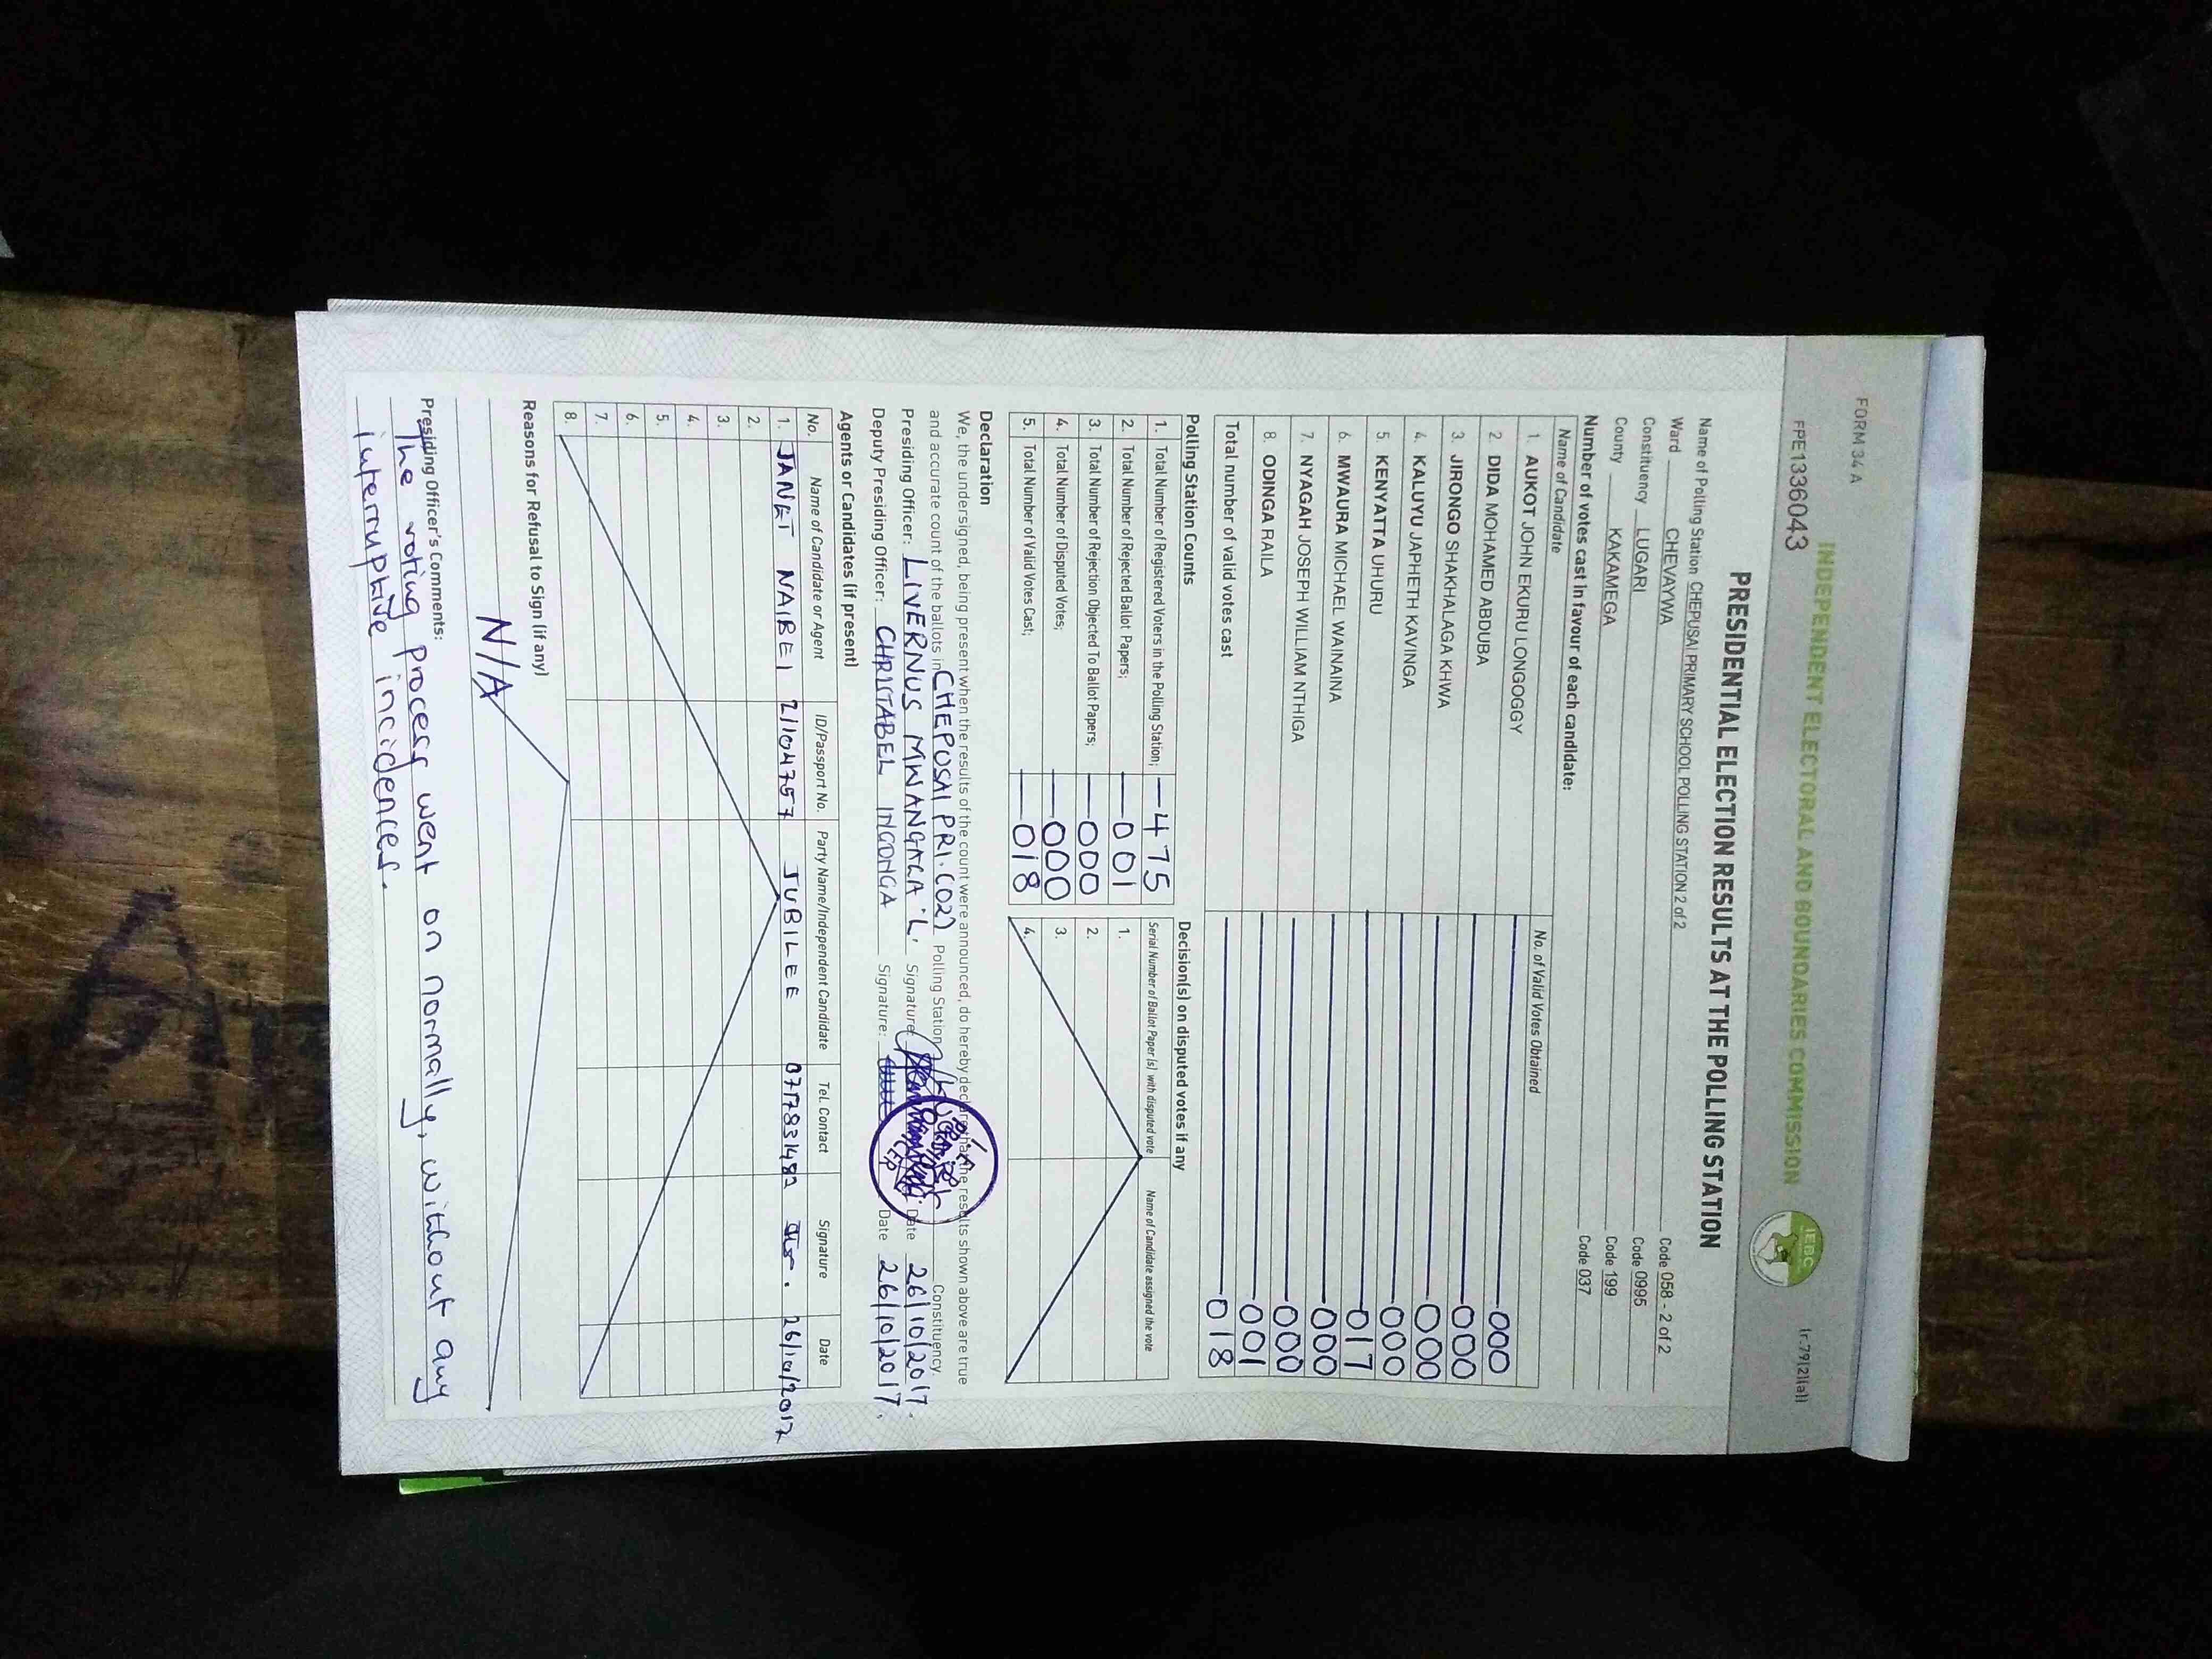 FORM 34 A
INDEPENDENT ELECTORAL AND BOUNDARIES COMMISSION
IEBC
(r.79(2)(a))
FPE1336043
PRESIDENTIAL ELECTION RESULTS AT THE POLLING STATION
Name of Polling Station CHEPUSAI PRIMARY SCHOOL POLLING STATION 2 of 2 Code 058 - 2 of 2
Ward CHEVAYWA Code 0995
Constituency LUGARI Code 199
County KAKAMEGA Code 037
Number of votes cast in favour of each candidate:
Name of Candidate No. of Valid Votes Obtained
1. AUKOT JOHN EKURU LONGOGGY 000
2. DIDA MOHAMED ABDUBA 000
3. JIRONGO SHAKHALAGA KHWA 000
4. KALUYU JAPHETH KAVINGA 000
5. KENYATTA UHURU 017
6. MWAURA MICHAEL WAINAINA 000
7. NYAGAH JOSEPH WILLIAM NTHIGA 000
8. ODINGA RAILA 001
Total number of valid votes cast 018
Polling Station Counts
1. Total Number of Registered Voters in the Polling Station; 475
2. Total Number of Rejected Ballot Papers; 001
3 Total Number of Rejection Objected To Ballot Papers; 000
4. Total Number of Disputed Votes; 000
5. Total Number of Valid Votes Cast; 018
Decision(s) on disputed votes if any
Serial Number of Ballot Paper (s) with disputed vote Name of Candidate assigned the vote
1.
2.
3.
4.
Declaration
We, the undersigned, being present when the results of the count were announced, do hereby declare that the results shown above are true
and accurate count of the ballots in CHEPUSAI PRI. (02) Polling Station, Constituency.
Presiding Officer: LIVERNUS MWANGACA L. Signature: Date 26/10/2017.
Deputy Presiding Officer: CHRISTABEL INGONGA Signature: Date 26/10/2017.
Agents or Candidates (if present)
No. Name of Candidate or Agent ID/Passport No. Party Name/Independent Candidate Tel. Contact Signature Date
1. JANET NAIBEI 21104757 JUBILEE 0717831482 26/10/2017
2.
3.
4.
5.
6.
7.
8.
Reasons for Refusal to Sign (if any)
N/A
Presiding Officer's Comments:
The voting process went on normally, without any
interruptive incidences.